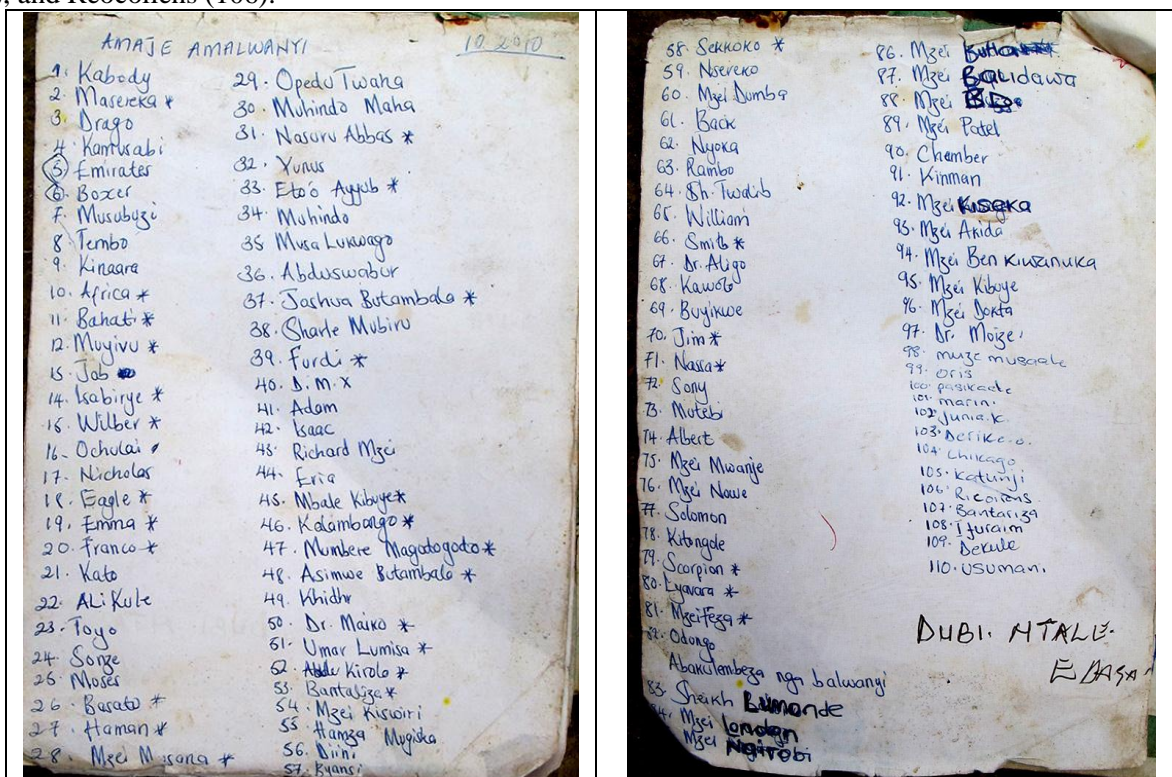 , and Reocoriens (106).
AMAJE AMALWANYI 10.2010
1. Kabody
2. Masereka *
3. Drago
4. Kamusabi
5 Emirates
6. Boxer
7. Musubuzi
8 Tembo
9. Kinaara
10. Africa *
11. Bahati *
12. Muyivu *
13. Job
14. Isabirye *
15. Wilber *
16. Ochulai
17. Nicholas
18. Eagle *
19. Emma *
20. Franco *
21. Kato
22. ALi Kule
23. Toyo
24. Songe
25. Moses
26. Basato *
27. Haman *
28. Mzei Musana *
29. Opedu Twaha
30. Muhindo Maha
31. Nasuru Abbas *
32. Yunus
33. Eto'o Ayyub *
34. Muhindo
35 Musa Lukwago
36. Abduswabur
37. Jashua Butambala *
38. Sharle Mubiru
39. Furdi *
40. D.M.X
41. Adam
42. Isaac
43. Richard Mzei
44. Eria
45. Mbale Kibuye *
46. Kalambango *
47. Mumbere Magatogoto *
48. Asimwe Butambala *
49. Khidhr
50. Dr. Maiko *
51. Umar Lumisa *
52. Kirolo *
53. Bantaliza *
54. Mzei Kiswiri
55 Hamza Mugisha
56. Diini
57. Byansi
58. Sekkoko *
59. Nsereko
60. Mzei Dumba
61. Back
62. Nyoka
63. Rambo
64. Sh. Twalib
65. William
66. Smith *
67. Dr. Aligo
68. Kawoob
69. Buyikwe
70. Jim *
71. Nassa *
72. Sony
73. Mutebi
74. Albert
75. Mzei Mwanje
76. Mzei Nowe
77. Solomon
78. Kitongole
79. Scorpion *
80. Lyavara *
81. Mzei Feza *
82. Odongo
Abakulembeza nga balwanyi
83. Sheikh Lumonde
84. Mzei london
Mzei Ngirobi
86. Mzei
87. Mzei Balidawa
88. Mzei
89. Mzei Patel
90. Chamber
91. Kinman
92. Mzei Kiseka
93. Mzei Akida
94. Mzei Ben Kiwanuka
95. Mzei Kibuye
96. Mzei Dokta
97. Dr. Moize
98. muze musaale
99. oris
100. pasikale
101. marin.
102. junia.k.
103. Derike.o.
104. Chikago
105. Katunji
106. Ricoirens
107. Bantariza
108. Ifuraim
109. Dekule
110. Usuman.
DUBI. NTALE.
EBAGA